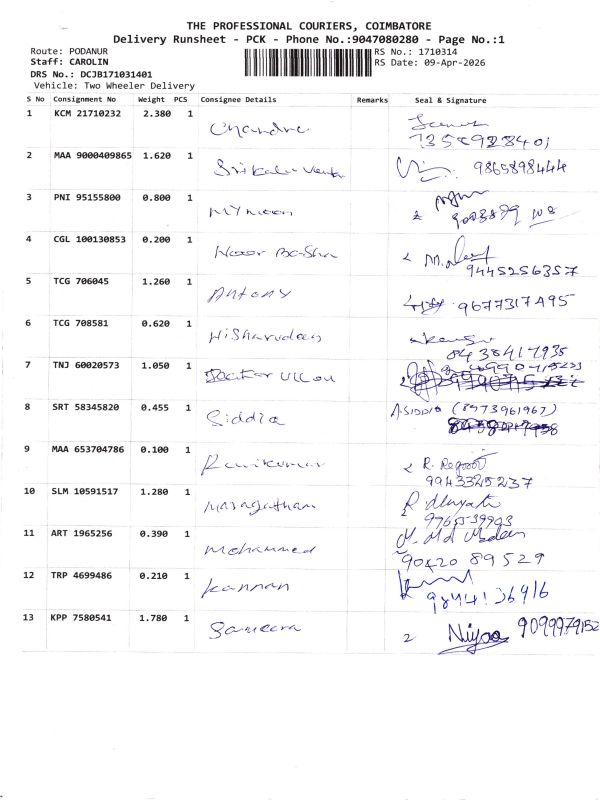 THE PROFESSIONAL COURIERS, COIMBATORE
Delivery Runsheet - PCK - Phone No.:9047080280 - Page No.:1
Route: PODANUR RS No.: 1710314
Staff: CAROLIN RS Date: 09-Apr-2026
DRS No.: DCJB171031401
Vehicle: Two Wheeler Delivery
S No Consignment No Weight PCS Consignee Details Remarks Seal & Signature
1 KCM 21710232 2.380 1
Chandra
2 MAA 9000409865 1.620 1
9865898444
3 PNI 95155800 0.800 1
Mymoon
4 CGL 100130853 0.200 1
Noor Basha
9445256357
5 TCG 706045 1.260 1
Antony 9677317495
6 TCG 708581 0.620 1
8438417938
7 TNJ 60020573 1.050 1
8 SRT 58345820 0.455 1 A.SIDDIQ (8973961967)
Siddiq
9 MAA 653704786 0.100 1
Ravikumar
9943325237
10 SLM 10591517 1.280 1
Maragatham
11 ART 1965256 0.390 1
Mohammed
90420 89529
12 TRP 4699486 0.210 1
Kannan
13 KPP 7580541 1.780 1
Sameera